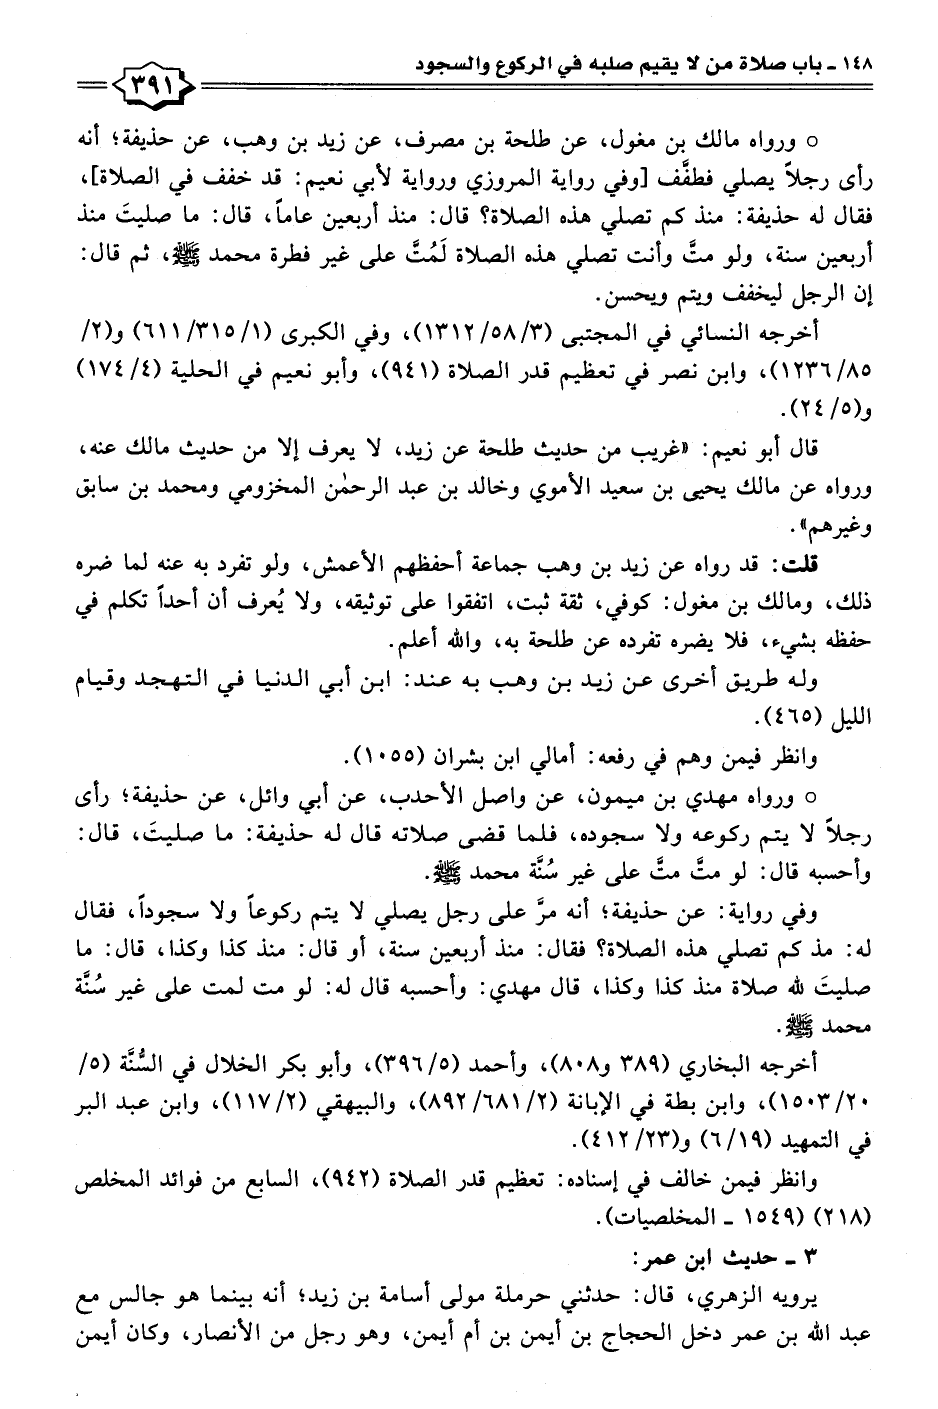 ١٤٨ ـ باب صلاة من لا يقيم صلبه في الركوع والسجود
٣٩١
○ ورواه مالك بن مغول، عن طلحة بن مصرف، عن زيد بن وهب، عن حذيفة؛ أنه
رأى رجلاً يصلي فطفَّف [وفي رواية المروزي ورواية لأبي نعيم: قد خفف في الصلاة]،
فقال له حذيفة: منذ كم تصلي هذه الصلاة؟ قال: منذ أربعين عاماً، قال: ما صليتَ منذ
أربعين سنة، ولو متَّ وأنت تصلي هذه الصلاة لَمُتَّ على غير فطرة محمد ﷺ، ثم قال:
إن الرجل ليخفف ويتم ويحسن.
أخرجه النسائي في المجتبى (٣/ ٥٨/ ١٣١٢)، وفي الكبرى (١/ ٣١٥/ ٦١١) و(٢/
٨٥/ ١٢٣٦)، وابن نصر في تعظيم قدر الصلاة (٩٤١)، وأبو نعيم في الحلية (٤/ ١٧٤)
و(٥/ ٢٤).
قال أبو نعيم: «غريب من حديث طلحة عن زيد، لا يعرف إلا من حديث مالك عنه،
ورواه عن مالك يحيى بن سعيد الأموي وخالد بن عبد الرحمٰن المخزومي ومحمد بن سابق
وغيرهم».
قلت: قد رواه عن زيد بن وهب جماعة أحفظهم الأعمش، ولو تفرد به عنه لما ضره
ذلك، ومالك بن مغول: كوفي، ثقة ثبت، اتفقوا على توثيقه، ولا يُعرف أن أحداً تكلم في
حفظه بشيء، فلا يضره تفرده عن طلحة به، والله أعلم.
وله طريق أخرى عن زيد بن وهب به عند: ابن أبي الدنيا في التهجد وقيام
الليل (٤٦٥).
وانظر فيمن وهم في رفعه: أمالي ابن بشران (١٠٥٥).
○ ورواه مهدي بن ميمون، عن واصل الأحدب، عن أبي وائل، عن حذيفة؛ رأى
رجلاً لا يتم ركوعه ولا سجوده، فلما قضى صلاته قال له حذيفة: ما صليتَ، قال:
وأحسبه قال: لو متَّ متَّ على غير سُنَّة محمد ﷺ.
وفي رواية: عن حذيفة؛ أنه مرَّ على رجل يصلي لا يتم ركوعاً ولا سجوداً، فقال
له: مذ كم تصلي هذه الصلاة؟ فقال: منذ أربعين سنة، أو قال: منذ كذا وكذا، قال: ما
صليتَ لله صلاة منذ كذا وكذا، قال مهدي: وأحسبه قال له: لو مت لمت على غير سُنَّة
محمد ﷺ.
أخرجه البخاري (٣٨٩ و٨٠٨)، وأحمد (٥/ ٣٩٦)، وأبو بكر الخلال في السُّنَّة (٥/
٢٠/ ١٥٠٣)، وابن بطة في الإبانة (٢/ ٦٨١/ ٨٩٢)، والبيهقي (٢/ ١١٧)، وابن عبد البر
في التمهيد (١٩/ ٦) و(٢٣/ ٤١٢).
وانظر فيمن خالف في إسناده: تعظيم قدر الصلاة (٩٤٢)، السابع من فوائد المخلص
(٢١٨) (١٥٤٩ ـ المخلصيات).
٣ ـ حديث ابن عمر:
يرويه الزهري، قال: حدثني حرملة مولى أسامة بن زيد؛ أنه بينما هو جالس مع
عبد الله بن عمر دخل الحجاج بن أيمن بن أم أيمن، وهو رجل من الأنصار، وكان أيمن